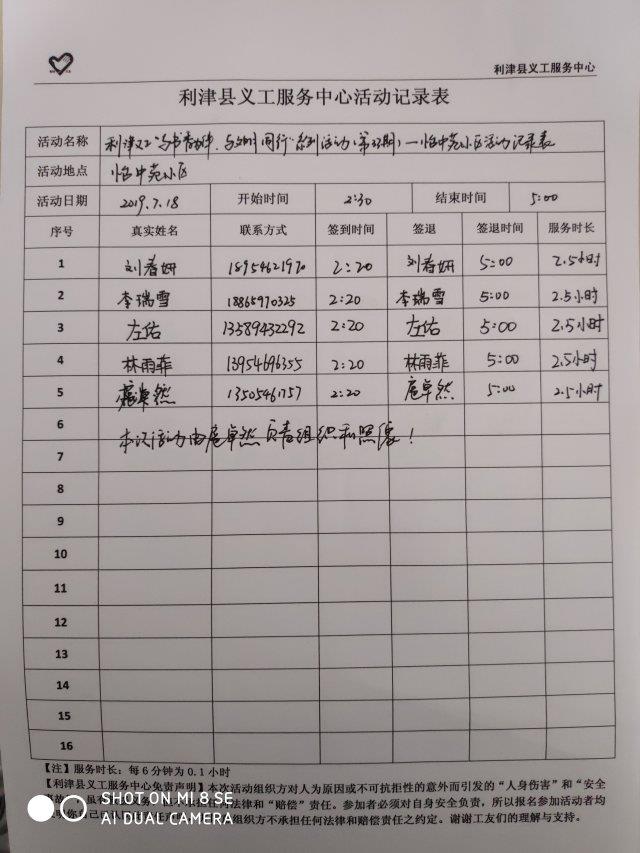 利津县义工服务中心
利津县义工服务中心活动记录表
活动名称 利津义工"与书香为伴,与文明同行"系列活动(第33期)—怡中苑小区活动记录表
活动地点 怡中苑小区
活动日期 2019.7.18 开始时间 2:30 结束时间 5:00
序号 真实姓名 联系方式 签到时间 签退 签退时间 服务时长
1 刘春妍 18954621970 2:20 刘春妍 5:00 2.5小时
2 李瑞雪 18865970325 2:20 李瑞雪 5:00 2.5小时
3 左佑 13589432292 2:20 左佑 5:00 2.5小时
4 林雨菲 13954696355 2:20 林雨菲 5:00 2.5小时
5 扈卓然 13505461757 2:20 扈卓然 5:00 2.5小时
6
本次活动由扈卓然负责组织和照像!
7
8
9
10
11
12
13
14
15
16
【注】服务时长:每6分钟为0.1小时
【利津县义工服务中心免责声明】本次活动组织方对人为原因或不可抗拒性的意外而引发的"人身伤害"和"安全
法律和"赔偿"责任。参加者必须对自身安全负责,所以报名参加活动者均
组织方不承担任何法律和赔偿责任之约定。谢谢工友们的理解与支持。
SHOT ON MI 8 SE
AI DUAL CAMERA